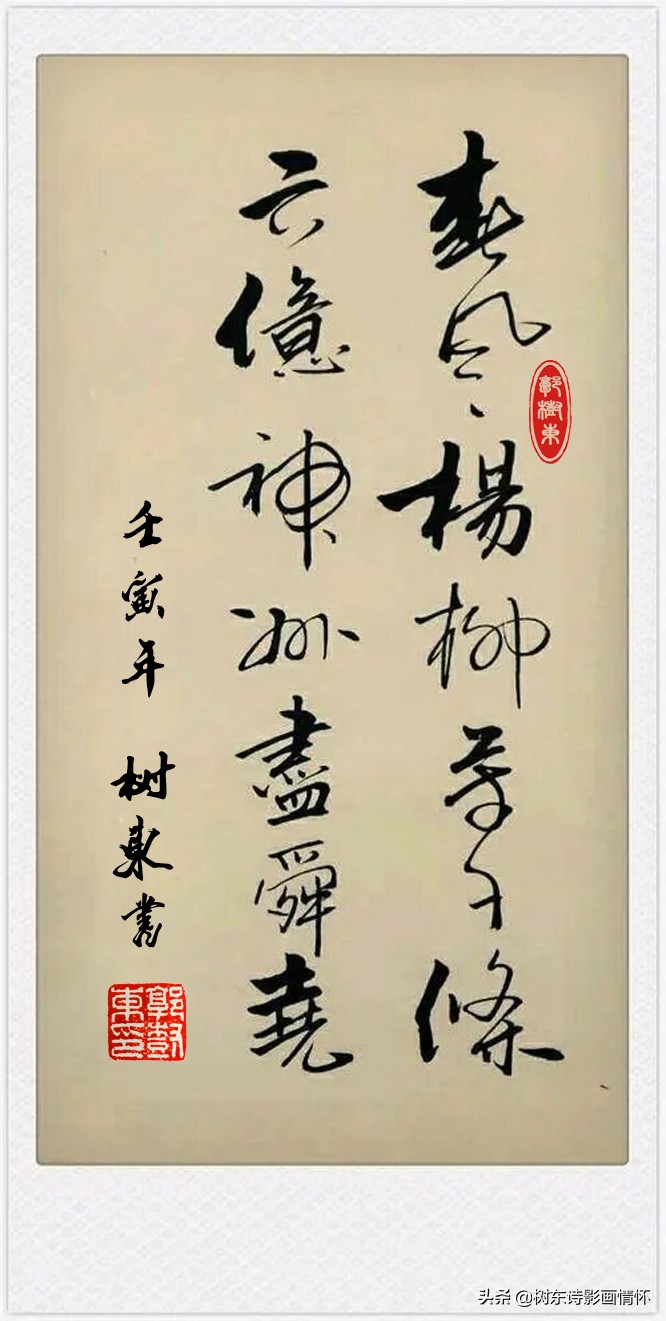 春風楊柳萬千條
六億神州盡舜堯
壬寅年 树東書
郭樹東
郭樹東印
头条 @树东诗影画情怀